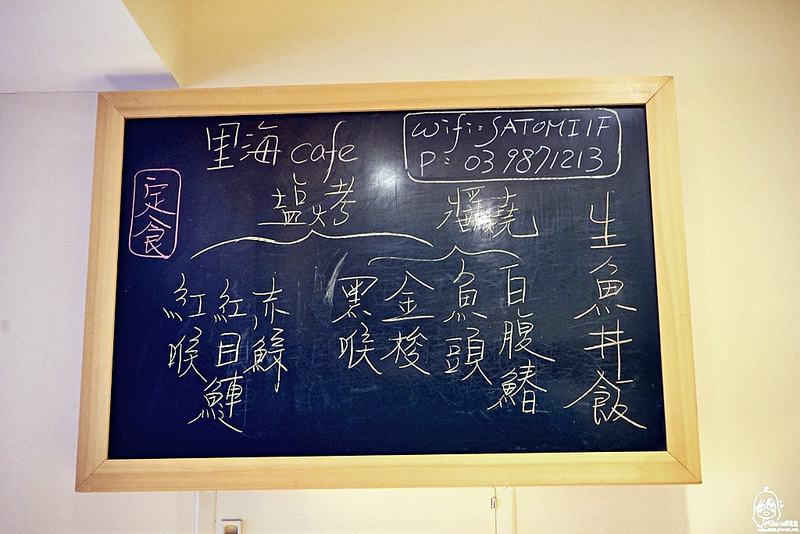 里海 cafe
wifi: SATOMI 1F
P: 03 9871213
定食
生魚丼飯
醬燒
白腹鰆
魚頭
塩烤
金梭
黑喉
赤鯮
紅目鰱
紅喉